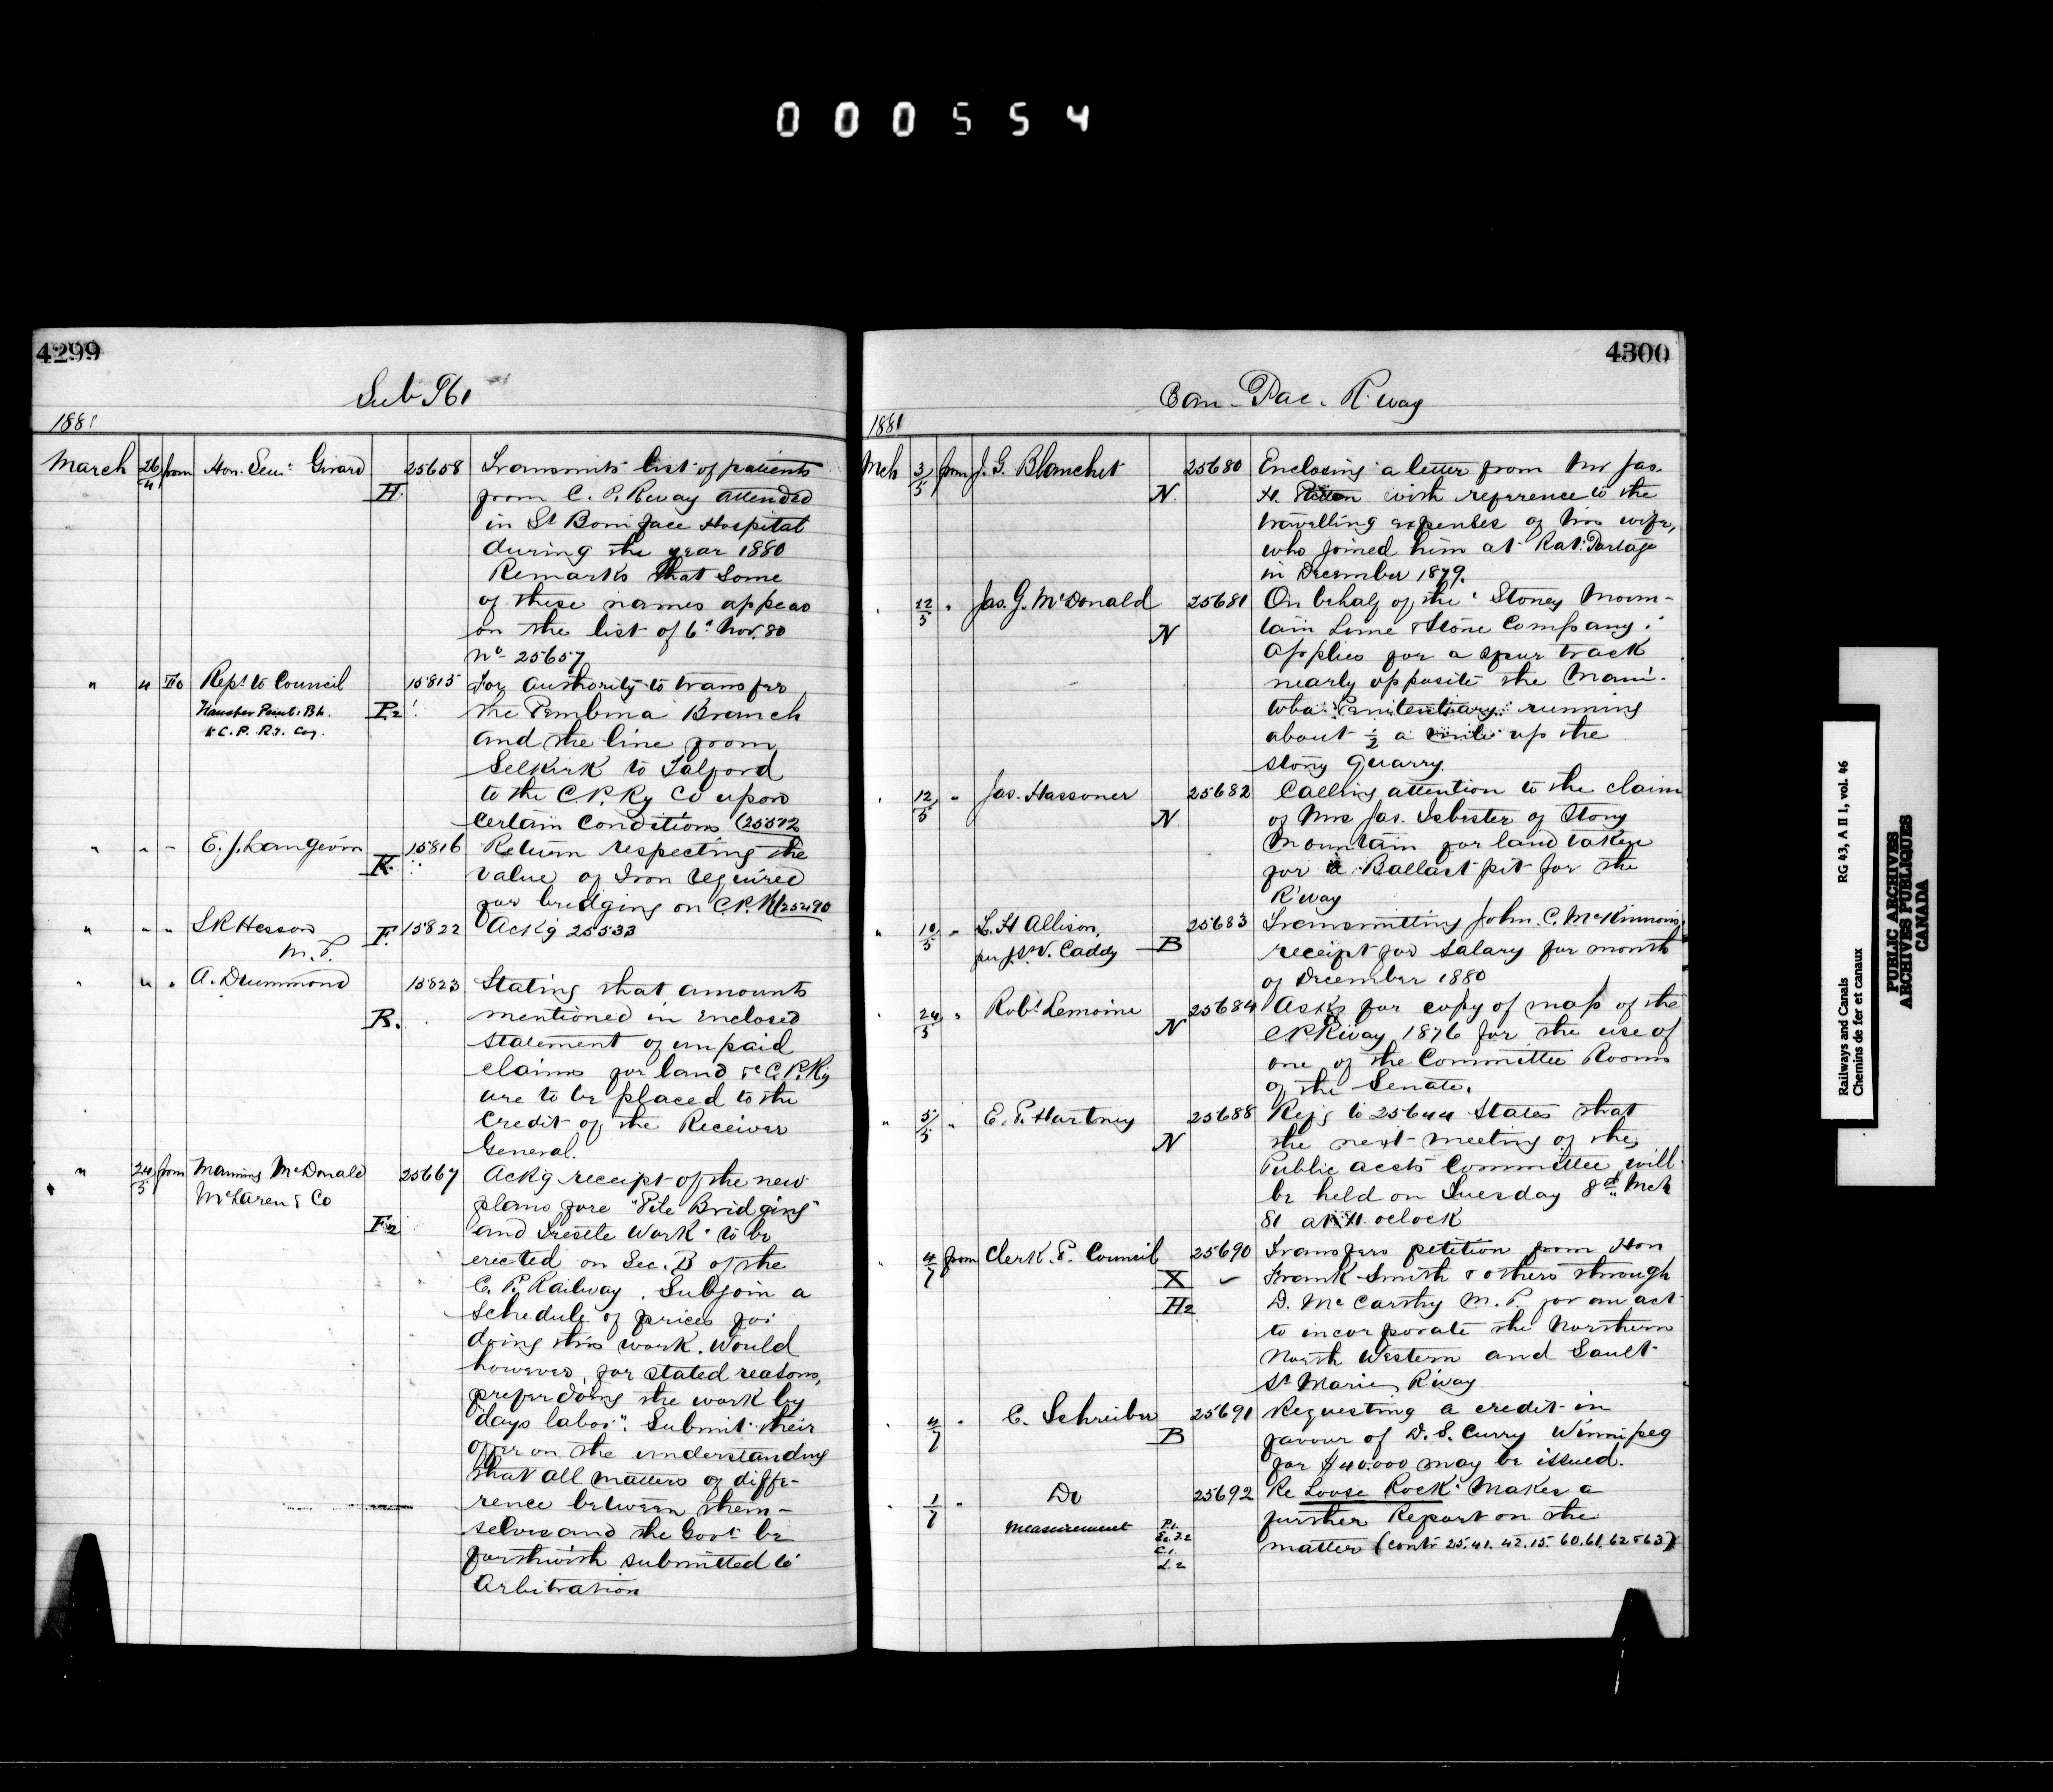 000554
4299
Sub 961
1881
March 26/4 from Hon. Sen. Girard H. 25658 Transmits list of patients
from C. P. Rway attended
in St Boniface Hospital
during the year 1880
Remarks that some
of these names appear
on the list of 6th Nov. 80
No 25657
" 4 To Rept to Council 15815 For authority to transfer
Transfer Pemb. Bh. P.2 the Pembina Branch
to C. P. Ry. Coy. and the line from
Selkirk to Talford
to the C.P. Ry Co upon
certain conditions (25572
" " " E. J. Langevin K. 15816 Return respecting the
value of Iron required
for bridging on C.P.R (25490
" " " S R Hesson M.P. F. 15822 Ackg 25533
" " " A. Drummond 15823 Stating that amounts
R. mentioned in enclosed
statement of unpaid
claims for land &c C.P. Ry
are to be placed to the
credit of the Receiver
General.
" 24/5 from Manning McDonald 25667 Ackg receipt of the new
McLaren & Co plans for "Pile Bridging"
F2 and Trestle Work" to be
erected on Sec. B of the
C. P. Railway. Subjoin a
schedule of prices for
doing this work. Would
however, for stated reasons,
prefer doing the work by
"days labor". Submit their
offer on the understanding
that all matters of diffe-
rence between them-
selves and the Govt be
forthwith submitted to
Arbitration
4300
Can. Pac. R. way
1881
Mch 3/5 from J. G. Blanchet 25680 Enclosing a letter from Mr Jas.
N. H. with reference to the
travelling expenses of his wife,
who joined him at Rat Portage
in December 1879.
" 22/5 " Jas. G. McDonald 25681 On behalf of the "Stoney Moun-
N tain Lime & Stone Company"
applies for a spur track
nearly opposite the Mani-
toba Penitentiary running
about ½ a mile up the
stony Quarry.
" 12/5 " Jas. Hassoner 25682 Calling attention to the claim
N of Mrs Jas. Isbister of Stony
Mountain for land taken
for a Ballast pit for the
R'way
" 10/5 " L. H Allison, 25683 Transmitting John. C. McKinnons
per J.S.V. Caddy B receipt for salary for month
of December 1880
" 24/5 " Robt Lemoine 25684 Asks for copy of map of the
N C P. Rway 1876 for the use of
one of the Committee Rooms
of the Senate.
" 5/5 " E. P. Hartney 25688 Refg to 25644 States that
N the next meeting of the
Public accts Committee will
be held on Tuesday 8th Mch
81 at 11. oclock
" 4/7 from Clerk. P. Council 25690 Transfers petition from Hon
X Frank Smith & others through
H2 D. McCarthy M. P. for an act
to incorporate the Northern
North Western and Sault
St Marie Rway
" 4/7 " C. Schreiber 25691 Requesting a credit in
B favour of D. S. Curry Winnipeg
for $40.000 may be issued.
" 1/7 " Do 25692 Re Loose Rock. Makes a
Measurement P.1. further Report on the
C.1. matter (contr 25. 41. 42. 15. 60. 61. 62 & 63)
L.2
Railways and Canals
Chemins de fer et canaux
RG 43, A II 1, vol. 46
PUBLIC ARCHIVES
ARCHIVES PUBLIQUES
CANADA